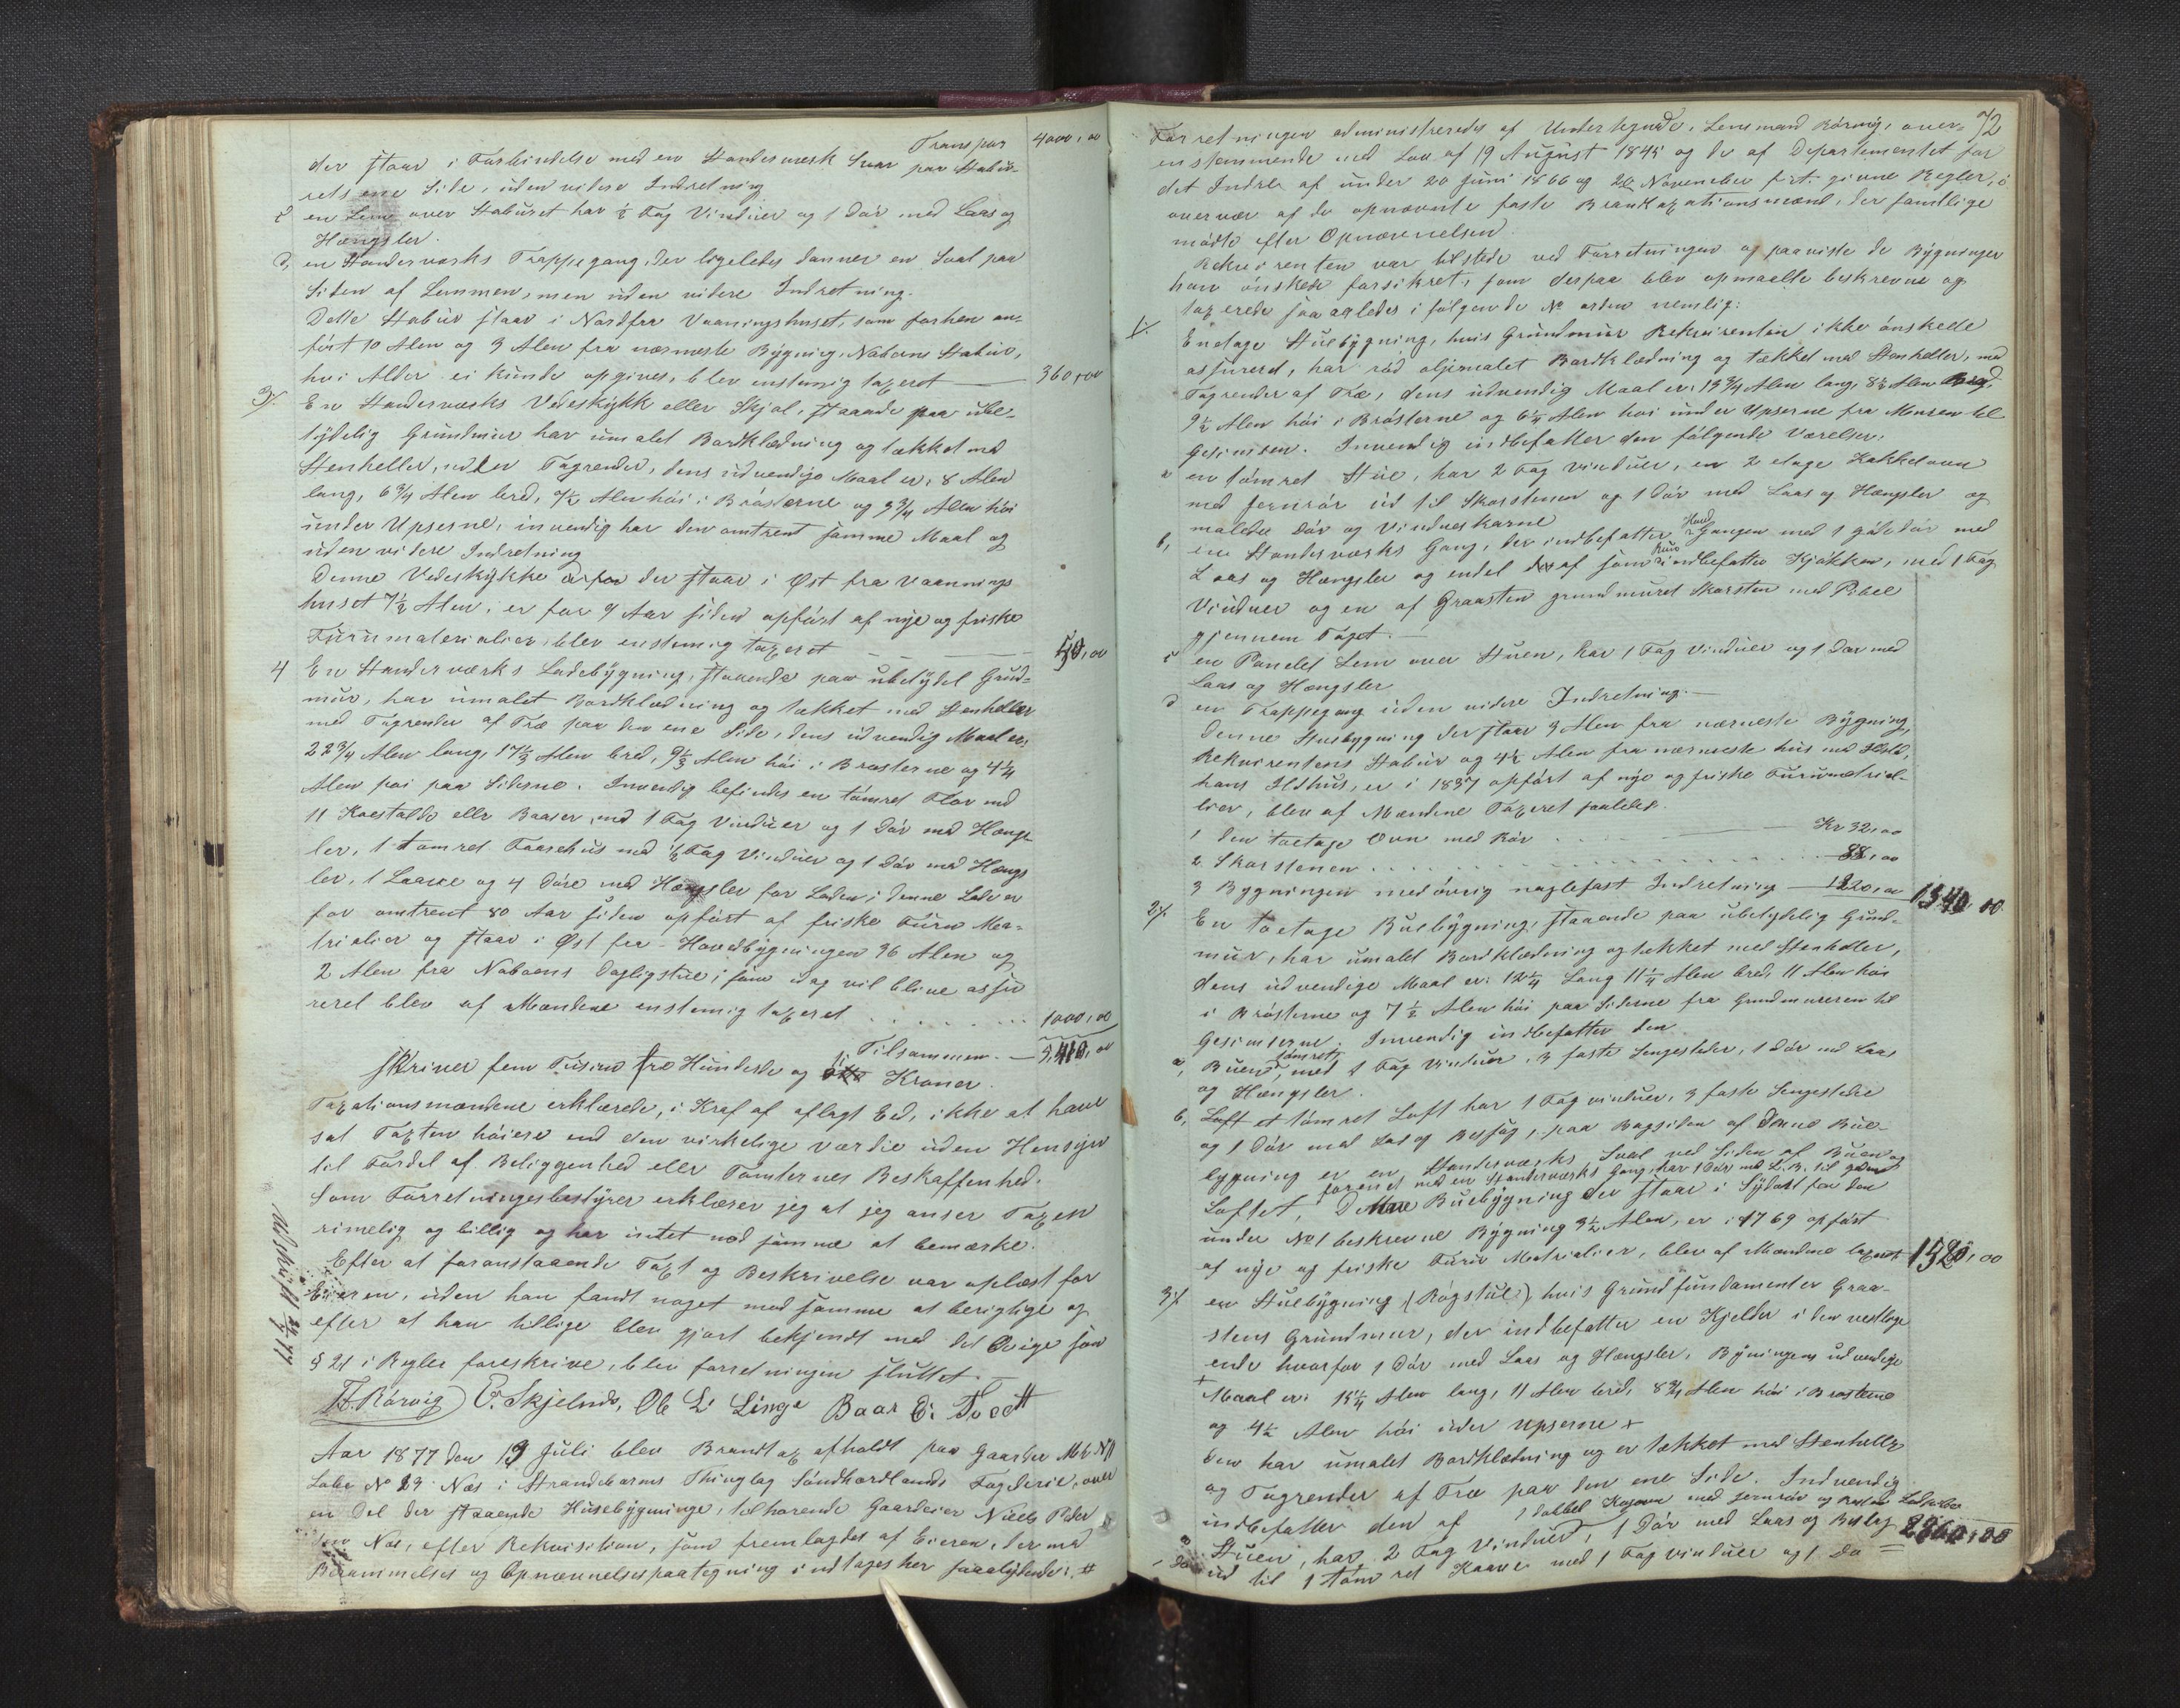 Transpor 4000,00
der staar i Forbindelse med en Standerværk Sval paa Stabu-
rets ene Side, uden videre Indretning
c en Lem over Staburet har ½ Fag Vinduer og 1 Dør med Laas og
Hængsler.
d, en Standerværks Trappegang, der ligeledes danner en Sval paa
Siden af Lemmen, men uden videre Indretning.
Dette Stabur staar i Nord fra Vaaningshuset, som forhen an-
ført 10 Alen og 3 Alen fra nærmeste Bygning, Naboens Stabur,
hvis Alder ei kunde opgives, blev enstemig taxeret — 360,00
3/. En Standerværks Vedeskykk eller Skjol, staaende paa ube-
tydelig Grundmur har umalet Bordklædning og tækket med
Stenheller, uden Tagrender, dens udvendige Maal er: 8 Alen
lang, 6¾ Alen bred, Alen høi i Brøsterne og 3¾ Alen høi
under Upserne, invendig har den omtrent samme Maal og
uden videre Indretning
Denne Vedeskykke der staar i Øst fra Vaanings
huset 7½ Alen, er for 9 Aar siden opført af nye og friske
Furumaterialier, blev enstemig taxeret — 50,00
4 En Standerværks Ladebygning, staaende paa ubetydel Grud-
mur, har umalet Bordklædning og tækket med Stenheller
med Tagrender af Træ paa den ene Side, dens udvendig Maal er:
22¾ Alen lang, 17⅓ Alen bred, 9⅓ Alen høi i Brøsterne og 4¼
Alen høi paa Siderne. Invendig befindes en tømret Flor med
11 Koestalde eller Baaser, med 1 Fag Vinduer og 1 Dør med Hængs
ler, 1 tømret Faarehus med ½ Fag Vinduer og 1 Dør med Hængs
ler, 1 Laave og 4 Døre med Hængsler for Laden; denne Lade er
for omtrent 80 Aar siden opført af friske Furu Mea-
trialier og staar i Øst fra Hovedbygningen 36 Alen og
2 Alen fra Naboens Dagligstue; som idag vil blive assu
reret blev af Mændene enstemig taxeret 1000,00
Tilsammen — 5,410,00
skriver fem Tusind fire Hundrede og ti Kroner.
Taxationsmændene erklærede, i Kraf af aflagt Eed, ikke at have
sat Taxten høiere end den virkelige Værdie uden Hensyn
til Fordel af Beliggenhed eller Tomternes Beskaffenhed.
Som Forretningesbestyrer erklærer jeg at jeg anser Taxten
rimelig og billig og har intet ved samme at bemærke.
Efter at foranstaaende Taxt og Beskrivelse var oplæst for
Eieren, uden han fandt noget med samme at berigtige og
efter at han tillige blev gjort bekjendt med det Øvige som
§ 21 i Regler foreskrive, blev forretningen sluttet.
Udskrift
Rørvig E. Skjelnds, Ole L: Linge Baar E: Tvedt
Aar 1877 den 19 Juli blev Brandtax afholdt paa Gaarden Mtr No
Løbe No 23 Næs i Strandebarms Thinglag Søndhordlands Fogderie, over
en Del der staaende Husebygninge, tilhørende Gaardeier Niels Peder
sen Næs, efter Rekvisition, som fremlagdes af Eieren, der med
Berammelses og Opnævnelsespaategning indtages her saalydende: #
72
Forretningen administreredes af Undertegnede, Lensmand Rørvig, over-
ensstemmende med Lov af 19 August 1845 og de af Departementet for
det Indre af under 20 Juni 1866 og 20 November f.st. givne Regler, i
overvær af de opnævnte faste Brandtaxationsmænd, der samtlige
mødte efter Opnævnelsen.
Rekvirenten var tilstede ved Forretningen og paaviste de Bygninger
han ønskede forsikret, som derpaa blev opmaalte beskrevne og
taxerede saaaledes i følgende No orden nemlig:
1/. Enetage Stuebygning, hvis Grundmur Rekvirenten ikke ønskede
assureret, har rød oljemalet Bordklædning og tækket med Stenheller, med
Tagrender af Træ, dens udvendig Maal er: 13¾ Alen lang, 8½ Alen bred,
9½ Alen høi i Brøsterne og 6¼ Alen høi under Upserne fra Muren til
Gesimsen. Invendig indbefatter den følgende Værelser.
a en tømret Stue, har 2 Fag Vinduer, en 2 etage Kakkelovn
med jernrør ud til Skorstenen og 1 Dør med Laas og Hængsler og
malede Dør og Vindueskarne
b, en Standerværks Gang, der indbefatter Gangen med 1 Dør med
Laas og Hængsler og endel deraf som indbefatter Kjøkken, med 1 Fag
Vinduer og en af Graasten grundmuret Skorsten med Pibel
gjennem Taget. —
c en Panelet Lem over Stuen, har 1 Fag Vinduer og 1 Dør med
Laas og Hængsler
d en Trappegang uden videre Indretning. —
Denne Stuebygning der staar 3 Alen fra nærmeste Bygning,
Rekvirentens Stabur og 4½ Alen fra nærmeste hus med Ildsted,
hans Ildhus, er i 1837 opført af nye og friske Furumatrial-
lier, blev af Mændene Taxeret saaledes.
1 den toetage Ovn med Rør Kr 32,00
2 Skorstenen 88,00
3 Bygningen med øvrig naglefast Indretning — 1220,00 1340 00
2/. En toetage Buebygning, staaende paa ubetydelig Grund-
mur, har umalet Bordklædning og tækket med Stenheller,
dens udvendige Maal er: 12¼ Lang 11¼ Alen bred, 11 Alen høi
i Brøsterne og 7½ Alen høi paa Siderne fra Grundmureren til
Gesimserne. Invendig indbefatter den
a, Buen, tømret, med 1 Fag Vinduer, 3 faste Sengesteder, 1 Dør med Laas
og Hængsler.
b, Loft et tømret Loft har 1 Fag vinduer, 3 faste Sengestedre
og 1 Dør med Laas og Beslag, paa Bagsiden af denne Bue-
bygning er en Standerværks Sval ved Siden af Buen og
forenet med en Standerværks Gang, har 1 Dør med L. B. til
Loftet, Denne Buebygning der staar i Sydost fra den
under No 1 beskrevne Bygning 3½ Alen, er i 1769 opført
af nye og friske Furu Matrialier, blev af Mændene taxeret 1520,00
3/. en Stuebygning (Røgstue), hvis Grundfundament er Graa-
stens Grundmur, der indbefatter en Kjelder i den vestlige
ende hvorfor 1 Dør med Laas og Hængsler. Byningens udvendige
+ Maal er: 15¼ Alen lang, 11 Alen bred, 8¾ Alen høi i Brøsterne
og 4½ Alen høi uder Upserne +
Den har umalet Bordklædning og er tækket med Stenheller
og Tagrender af Træ paa den ene Side. Indvendig
indbefatter den af 1 dobbel med jernrør og
a Stuen, har 2 Fag Vinduer, 1 Dør med Laas og Beslag 2860,00
ud til 1 tømret Kaave med 1 Fag vinduer og 1 Dø